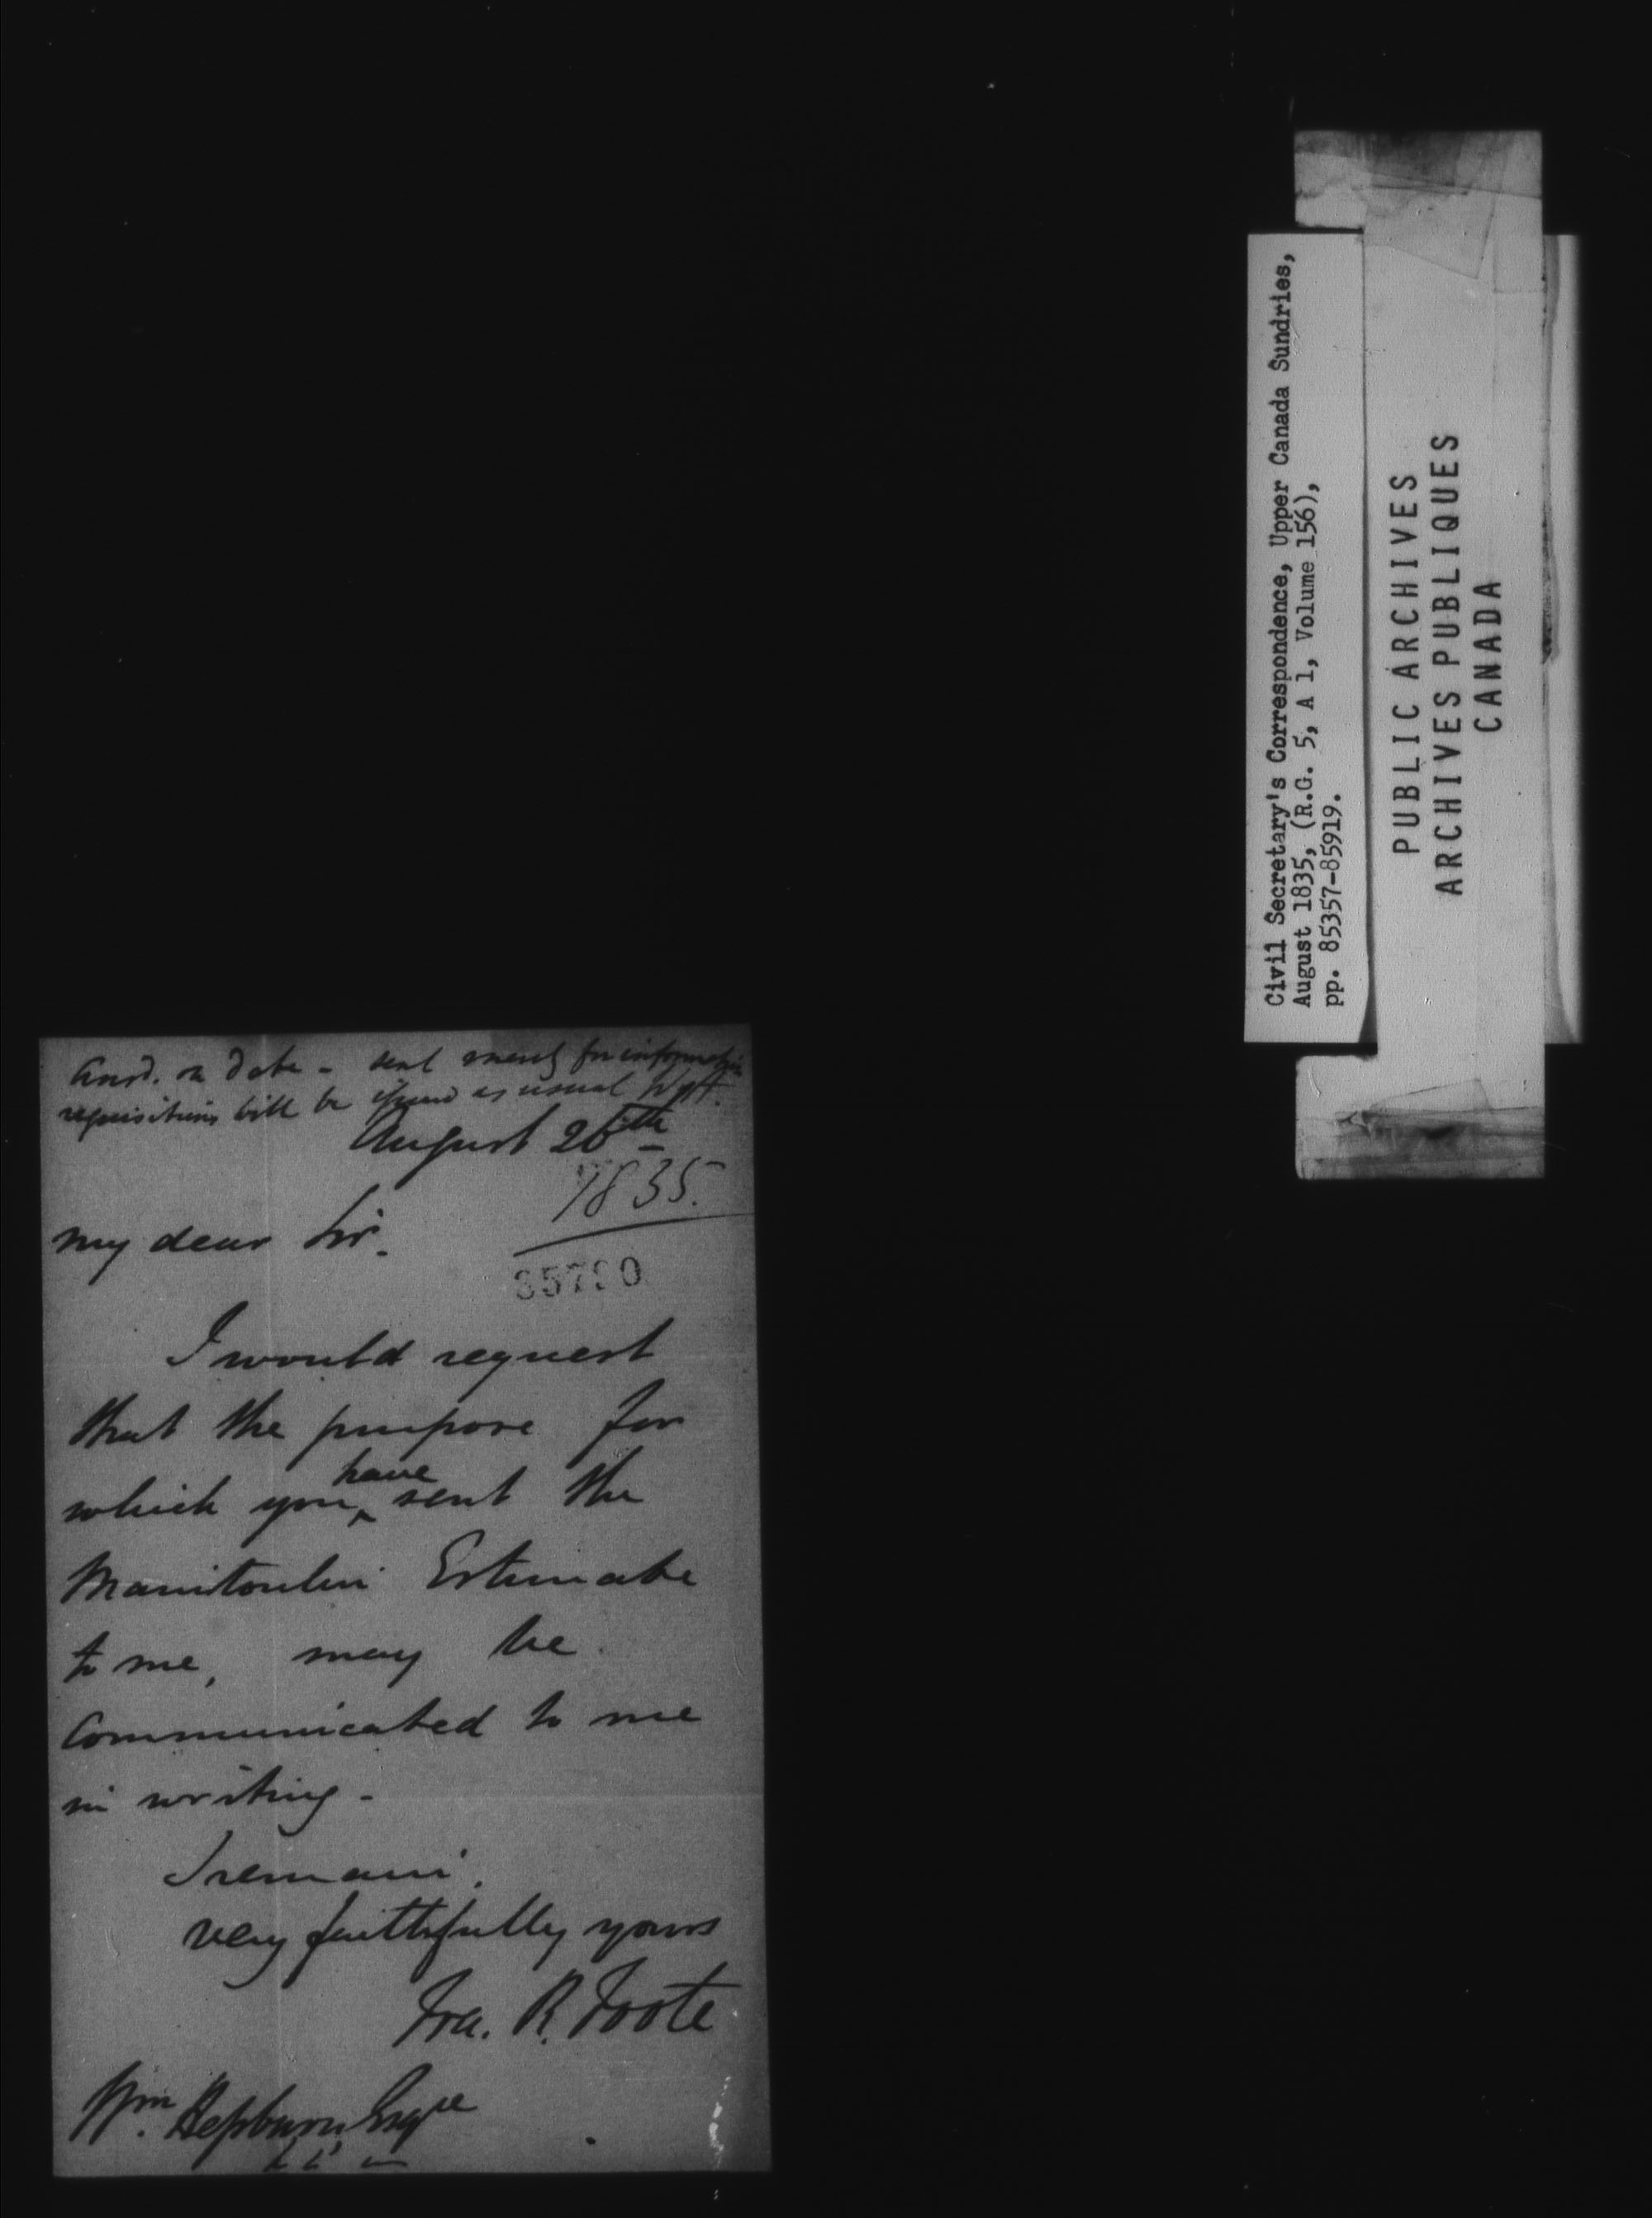 Ansd. on date - sent merely for information
requisitions will be issued as usual
August 26th
1835.
My dear Sir.
85790
I would request
that the purpose for
which you have sent the
Manitoulin Estimate
to me, may be
Communicated to me
in writing -
I remain,
very faithfully yours
Fra. R. Foote
Wm. Hepburn, Esqre
Civil Secretary's Correspondence, Upper Canada Sundries,
August 1835, (R.G. 5, A 1, Volume 156),
pp. 85357-85919.
PUBLIC ARCHIVES
ARCHIVES PUBLIQUES
CANADA